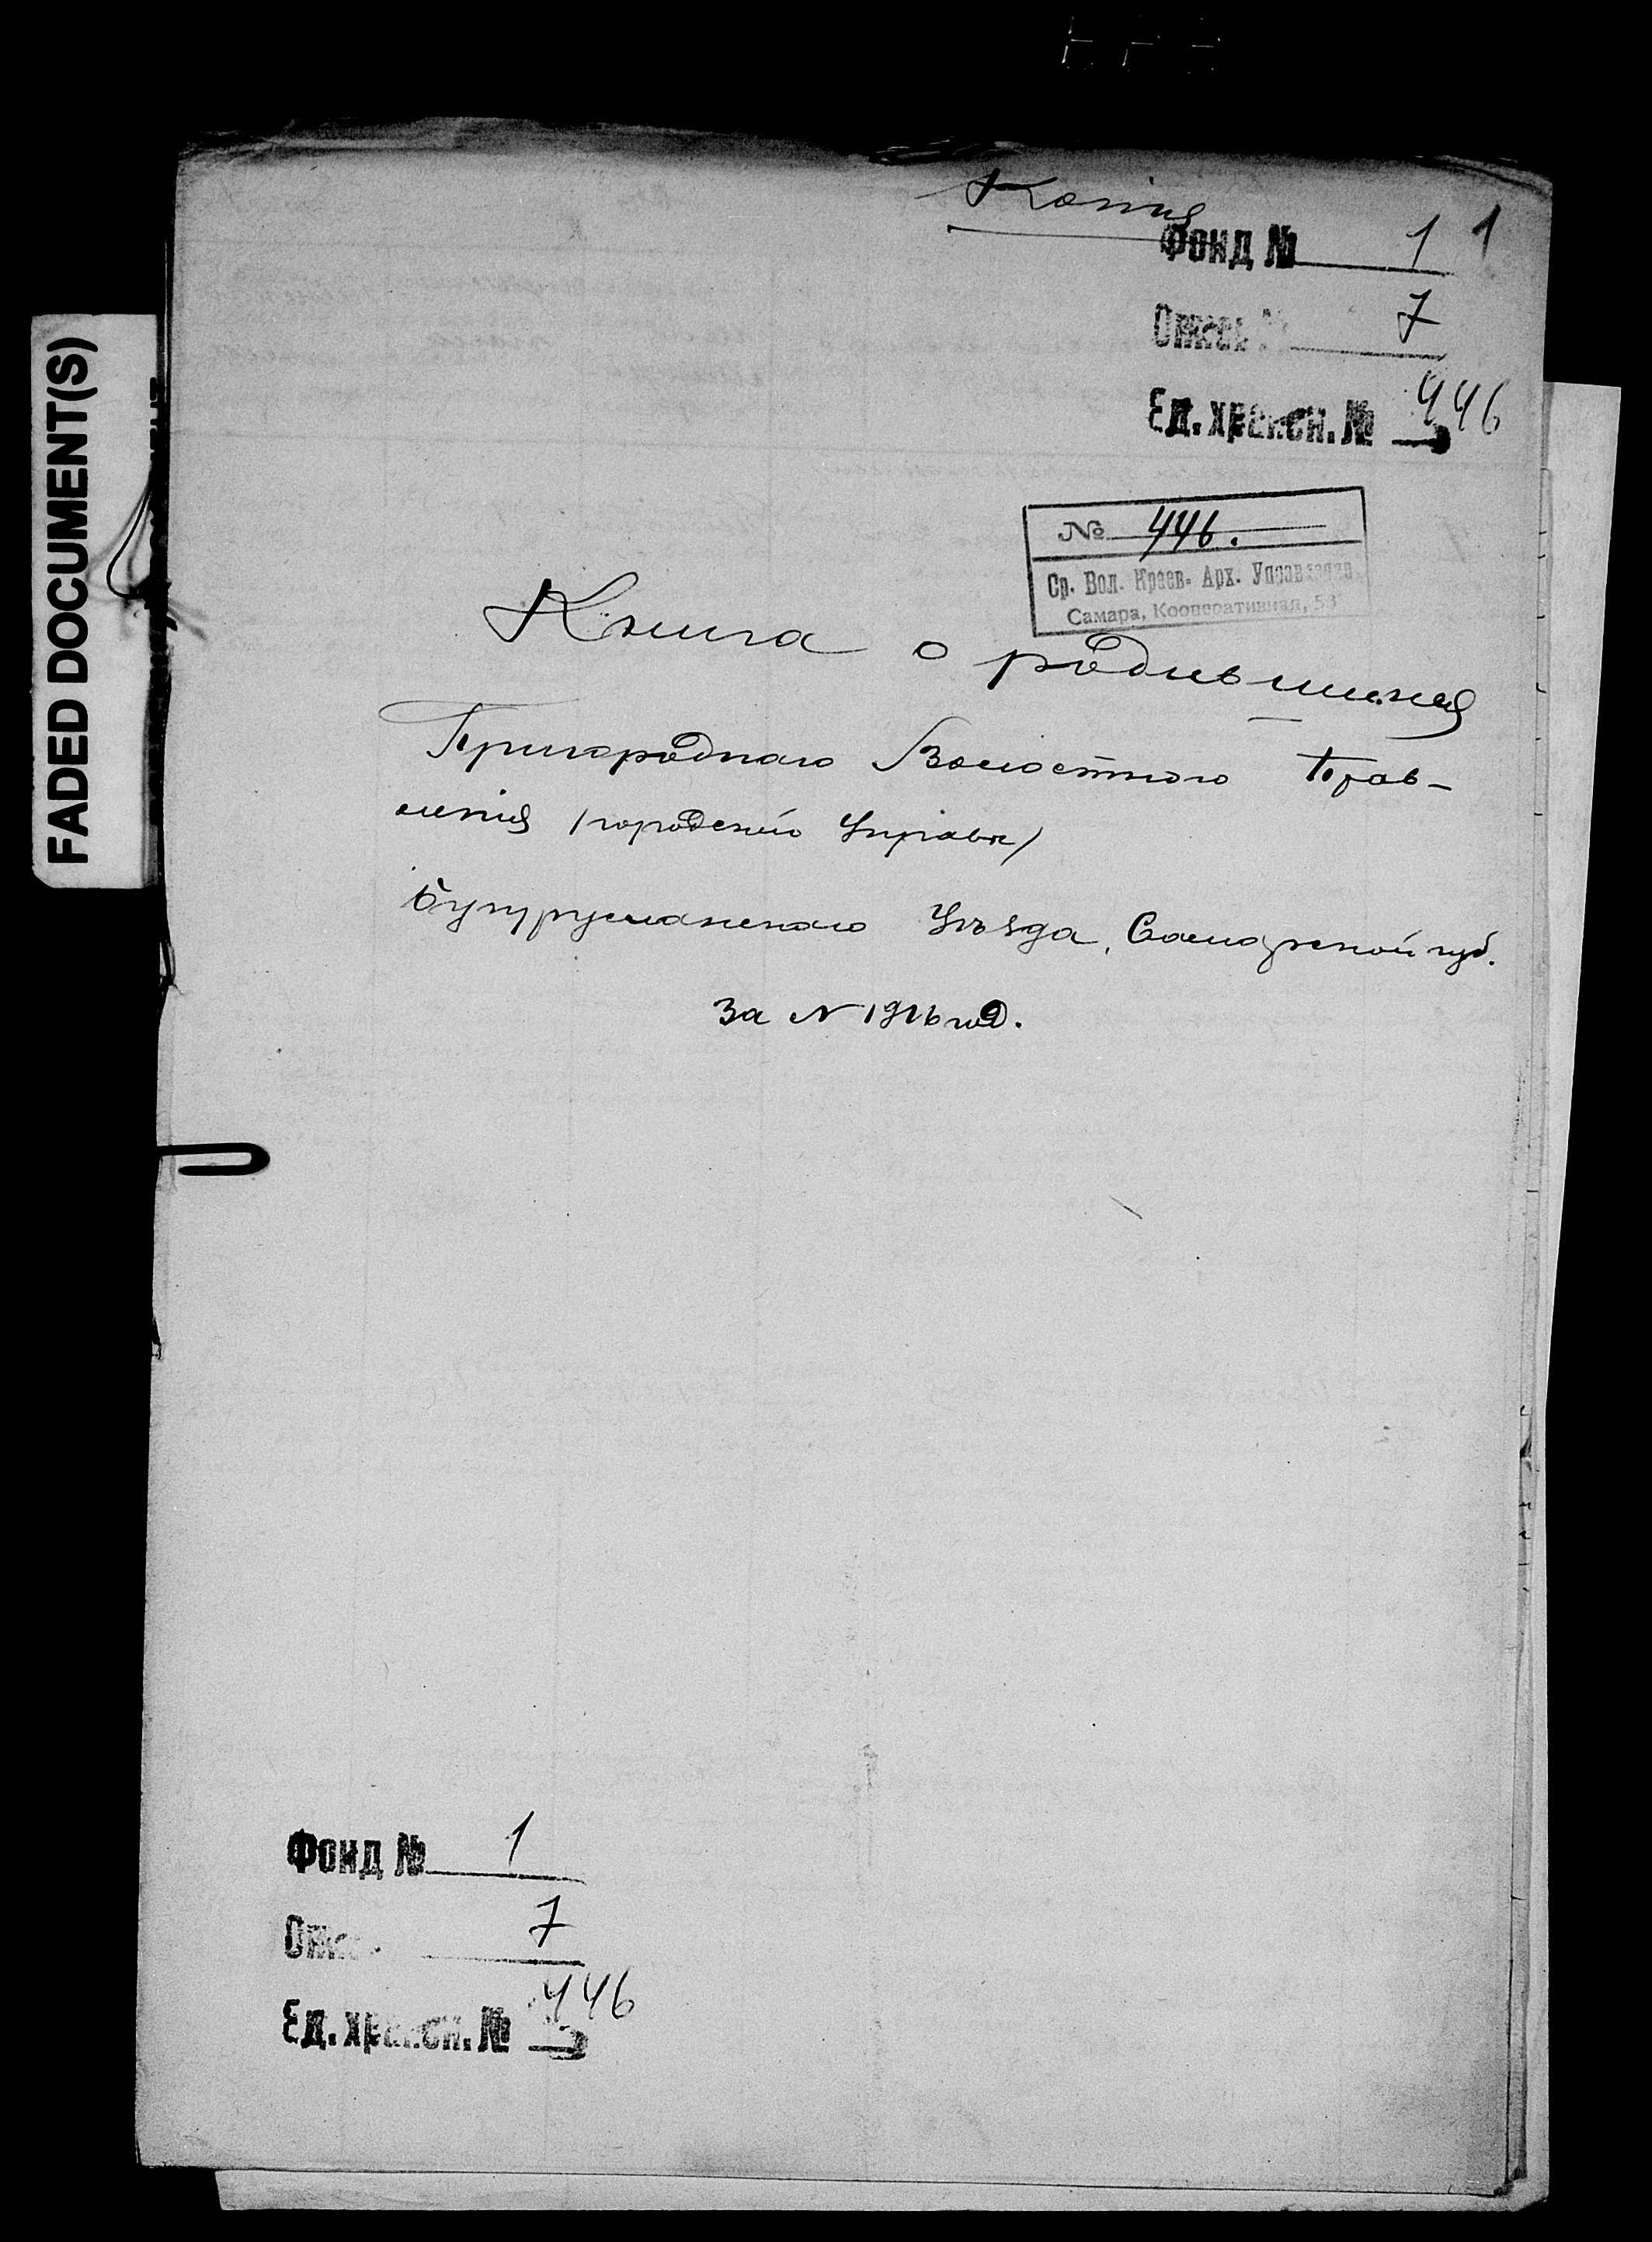 FADED DOCUMENT(S)
Копія
Фонд № 1 1
Опись № 7
Ед. хранен. № 446
№ 446.
Ср. Вол. Краев. Арх. Управление
Самара, Кооперативная, 53
Книга о родившихся
Пригороднаго Волостного Прав-
ленія (городской Управы)
Бугурусланскаго Уѣзда, Самарской губ.
За 1916 год.
Фонд № 1
Опись 7
Ед. хранен. № 446